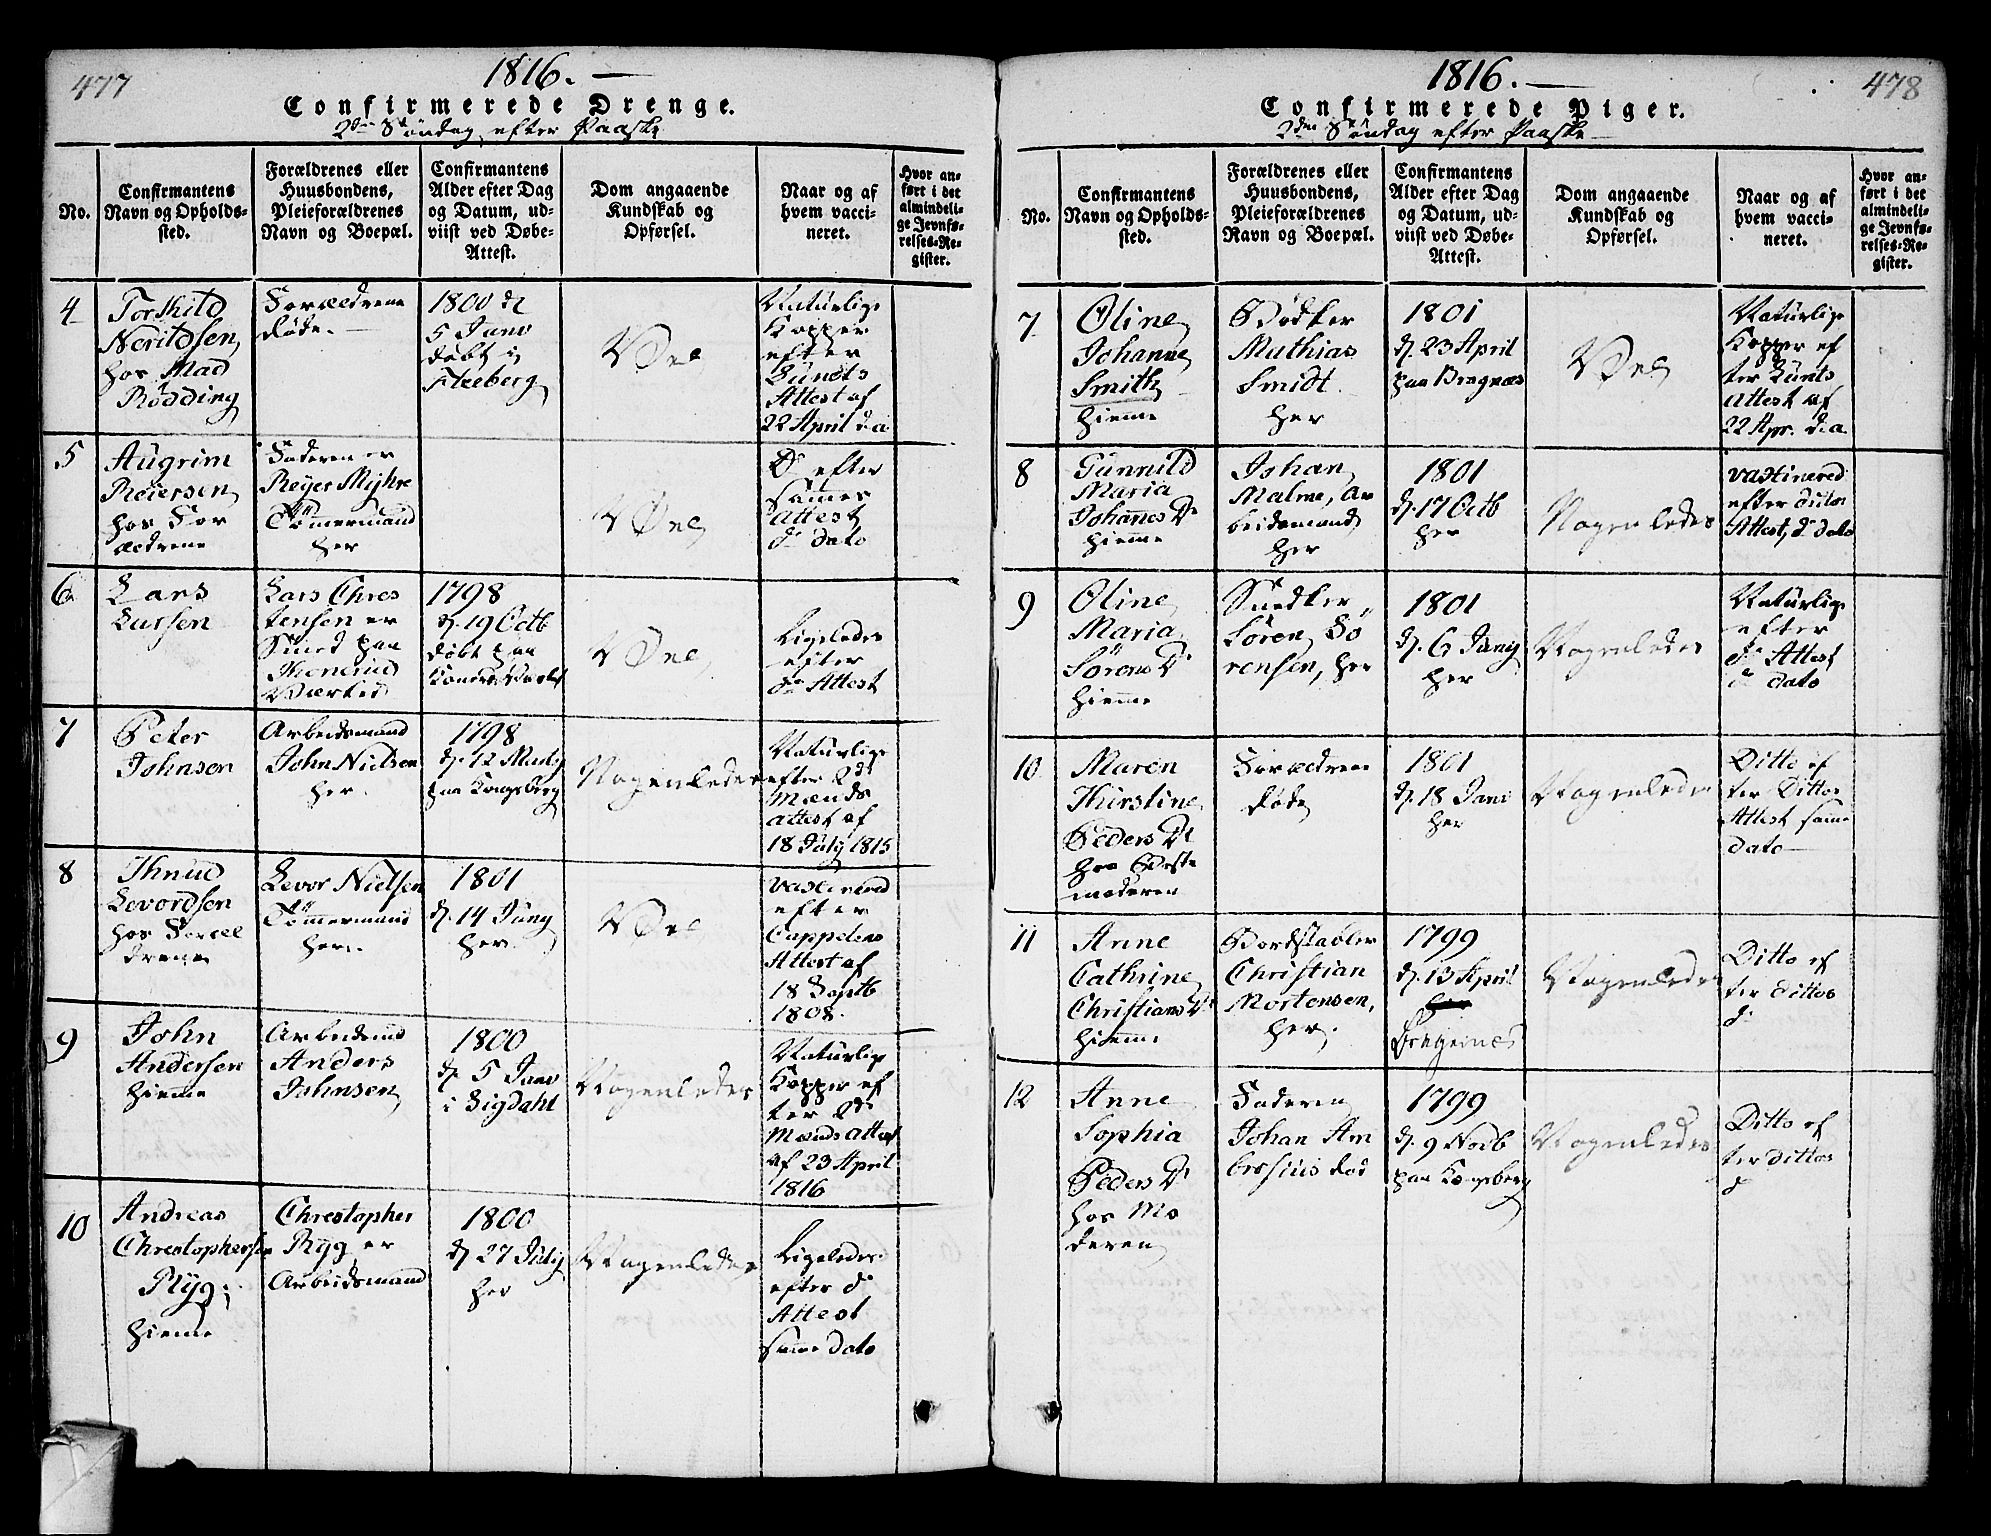 477
1816. —
Confirmerede Drenge.
2den Söndag efter Paaske
No.
Confirmantens
Navn og Opholds-
sted.
Forældrenes eller
Huusbondens,
Pleieforældrenes
Navn og Boepæl.
Confirmantens
Alder efter Dag
og Datum, ud-
viist ved Døbe-
Attest.
Dom angaaende
Kundskab og
Opførsel.
Naar og af
hvem vacci-
neret.
Hvor an-
ført i det
almindeli-
ge Jevnfø-
relses-Re-
gister.
4
Torkild
hos Mad
Rødding
Forældrene
døde. —
1800 d
5 Janv
døbt i
Fleeberg
Vel
Naturlige
Kopper
efter
Attest af
22 April d.a
5
Augrim
Reiersen
hos For
ældrene
Faderen er
Reyer Myhre
Tömmermand
her
Vel
Do efter
sammes
Attest
do dato
6
Lars
Larsen
Lars Chres
tensen er
Smed paa
Værket
1798
d. 19 Octb
døbt paa
Vel
Ligeledes
efter
do Attest
7
Peter
Johnsen
Arbeidsmand
John Nielsen
her.
1798
d. 12 Mady
paa Kongsberg
Nogenledes
Naturlige
efter
Mænds
attest af
18 July 1815
8
Knud
Levordsen
hos Foræl
drene
Levor Nielsen
Tömmermand
her.
1801
d. 14 Juny
her.
Vel
vaxinered
efter
Cappelens
Attest af
18 Septb
1808.
9
John
Andersen
hiemme
Arbeidsmd
Anders
Johnsen
1800
d. 5 Janv
i Sigdahl
Nogenledes
Naturlige
Kopper ef
ter
Mænds Attest
af 23 April
1816
10
Andreas
Chrestophersen
Ryg.
hiemme
Chrestopher
Ryg er
Arbeidsmand
1800
d. 27 July
her
Nogenledes
Ligeledes
efter do
Attest
samme dato
478
1816. —
Confirmerede Piger.
2den Söndag efter Paaske
No.
Confirmantens
Navn og Opholds-
sted.
Forældrenes eller
Huusbondens,
Pleieforældrenes
Navn og Boepæl.
Confirmantens
Alder efter Dag
og Datum, ud-
viist ved Døbe-
Attest.
Dom angaaende
Kundskab og
Opførsel.
Naar og af
hvem vacci-
neret.
Hvor an-
ført i det
almindeli-
ge Jevnfø-
relses-Re-
gister.
7
Oline
Johanne
Smith
hiemme
Bödker
Mathias
Smidt.
her
1801
d. 23 April
paa Bragnæs
Vel
Naturlige
Kopper ef
ter
Attest af
22 Apr. d.a
8
Gunnild
Maria
Johannes Dr
hiemme
Johan
Malme, Ar
beidsmand
her
1801
d. 17 Octb
her
Nogenledes
vaxinered
efter
Attest, do dato
9
Oline
Maria
Sörens Dr
hiemme
Snedker
Sören Sö
rensen, her
1801
d. 6 Juny
her
Nogenledes
Naturlige
efter
do Attest
do dato
10
Maren
Kirstine
Peders Dr
hos Beste
moderen
Forældrene
døde
1801
d. 18 Janv
her
Nogenledes
Ditto ef
ter Dittos
Attest samme
dato
11
Anne
Cathrine
Christians Dr
hiemme
Bordstabler
Christian
Mortensen,
her.
1799
d. 13 April
Nogenledes
Ditto ef
ter dittos
do
12
Anne
Sophia
Peders Dr
hos Mo
deren
Faderen
Johan Am
brosius död
1799
d. 9 Novb
paa Kongsberg
Nogenledes
Ditto ef
ter dittos
do